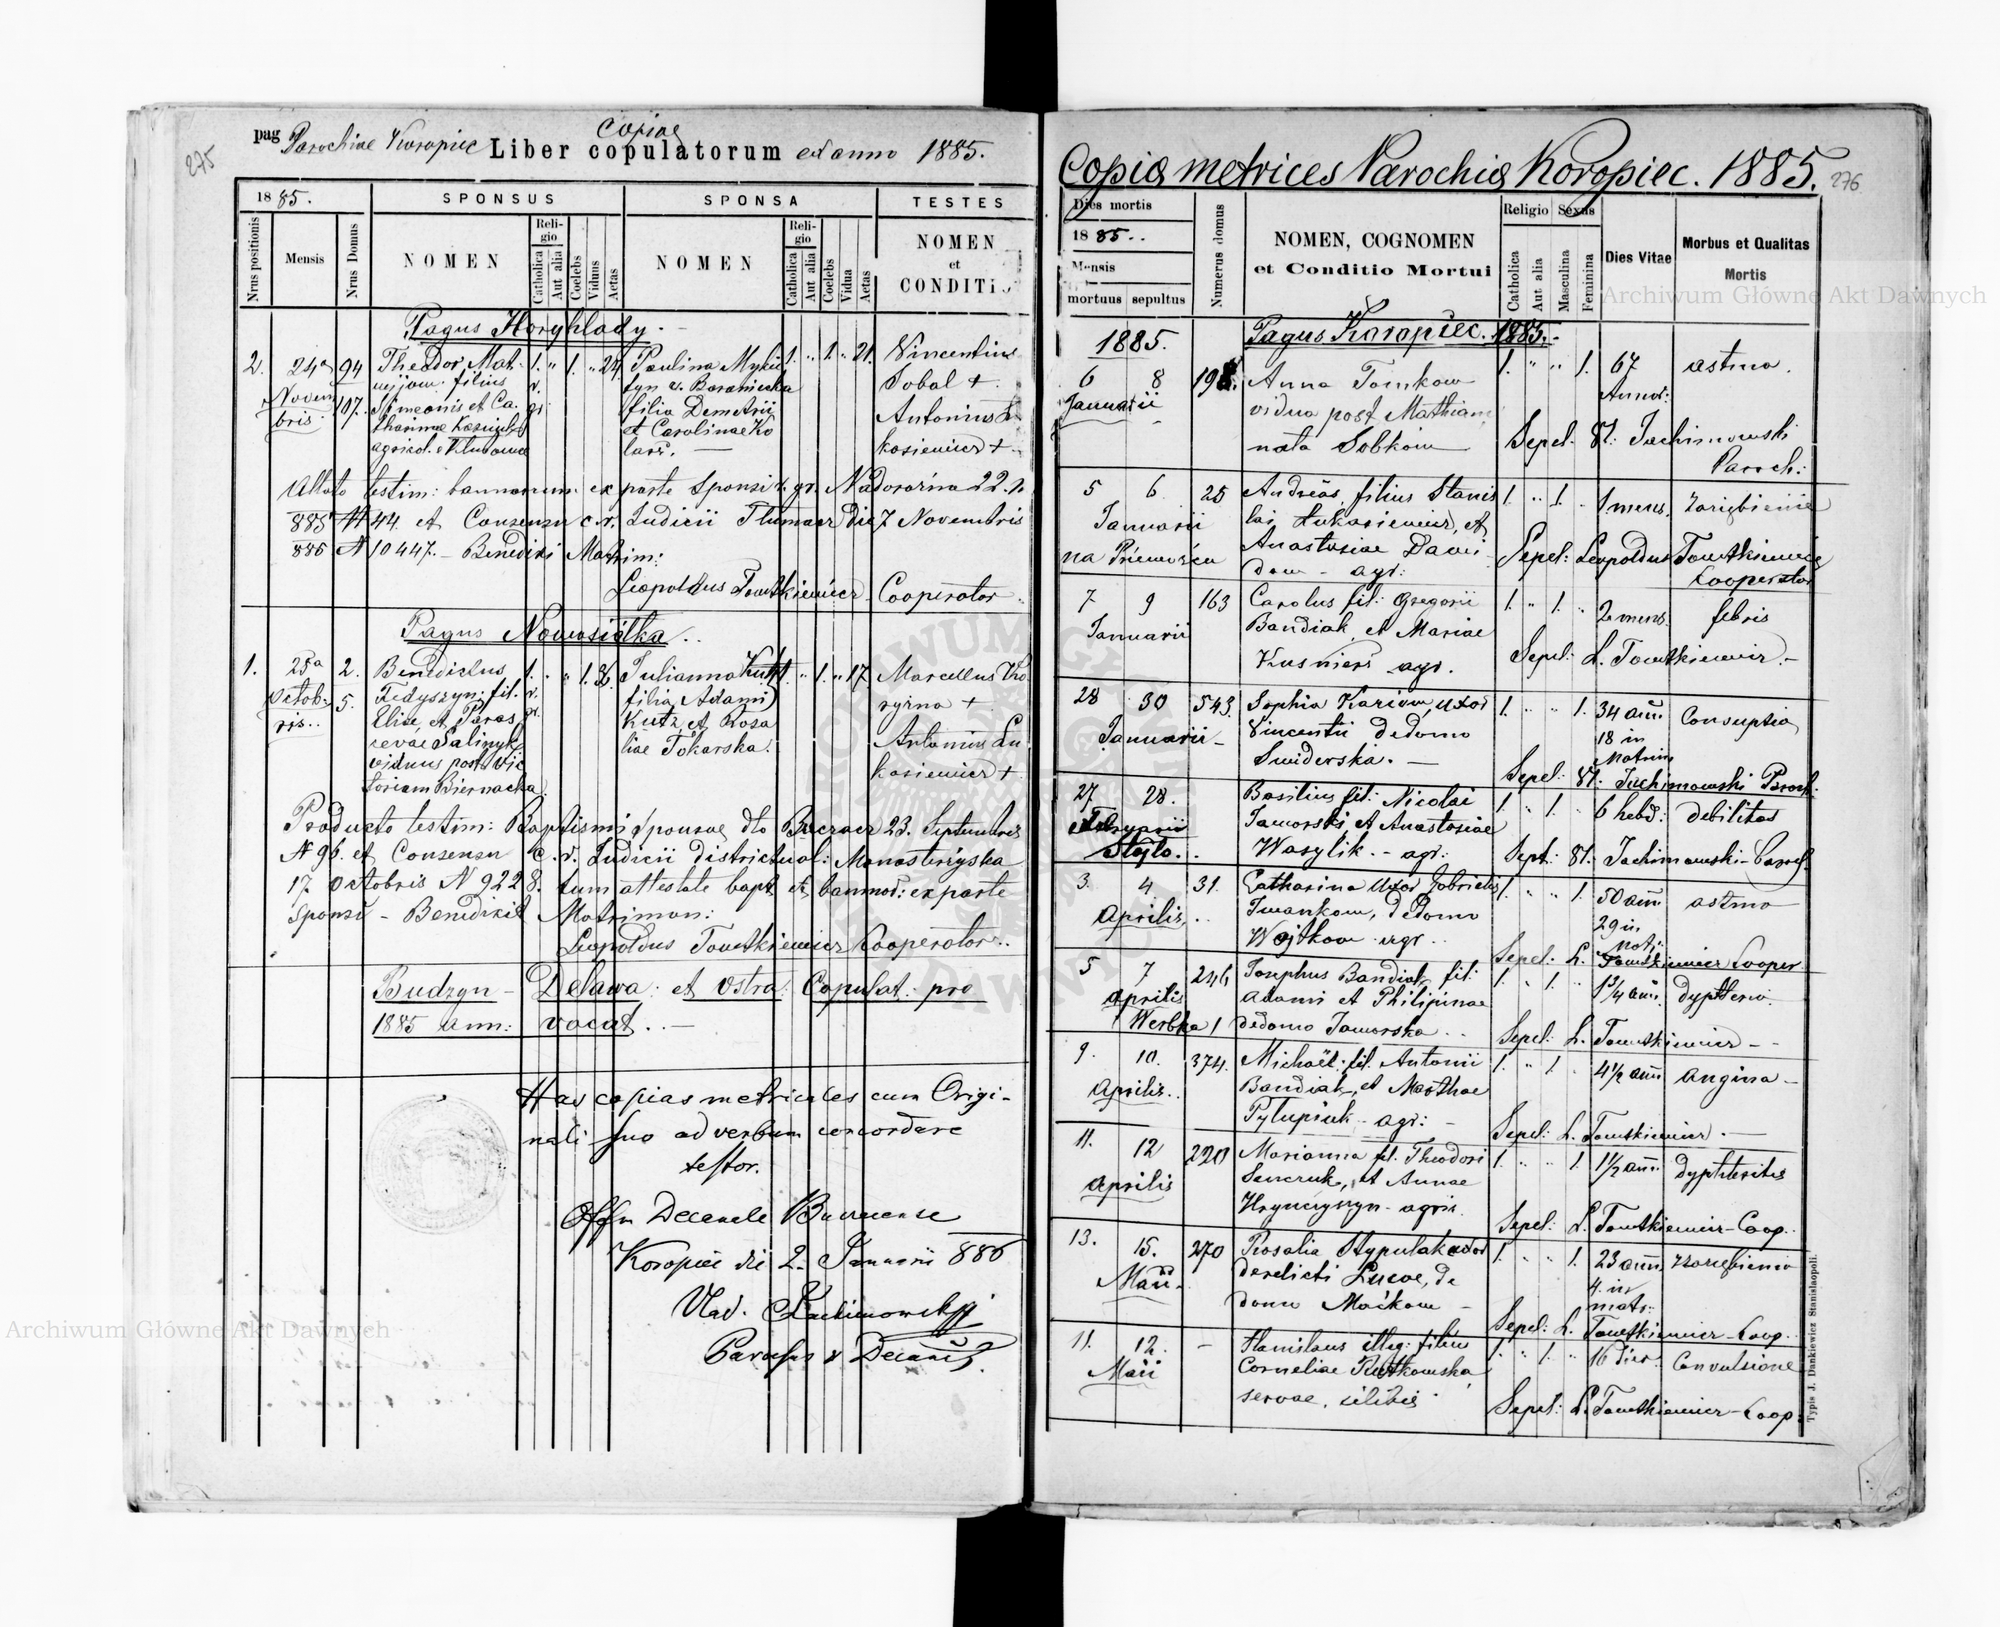 275
pag Parochiae Koropiec Liber copulatorum ex anno 1885.
Copiae
1885.
SPONSUS
SPONSA
TESTES
Nrus positionis
Mensis
Nrus Domus
NOMEN
Religio
Catholica
Aut alia
Coelebs
Viduus
Aetas
NOMEN
Religio
Catholica
Aut alia
Coelebs
Vidua
Aetas
NOMEN
et
CONDITIO
Pagus Horyhlady.
2. 24a 94 Theodor Mat- 1. " 1. " 24. Paulina Myku 1. " 1. " 21. Vincentius
filius r. tyn v. Baraniecka Sobal +
Novem 107. Simeonis et Ca gr. filia Demetrii Antonius Lu
bris. tharinae et Carolinae Ko kasiewicz +
agricol.
Allato testim: bannorum ex parte Sponsi r. gr. Nadorozna 22. 10.
885 N 44 et Consensu c. r. Judicii Tlumacz die 7 Novembris
885 N 10447. - Benedixi Matrim:
Leopoldus Towtkiewicz Cooperator
Pagus Nowosiolka.
1. 25a 2. Benedictus 1. " " 1. Julianna Kutz 1. " 1. " 17. Marcellus Ko
Octob- 5. Fedyszyn fil. r. filia Adami zyrna +
ris. Eliae et Paras gr. Kutz et Rosa Antonius Lu
cevae Salinyk liae Tokarska. kasiewicz +
viduus post Vic
toriam Biernacka.
Producto testim: Baptismi Sponsae dto Buczacz 23. Septembris
N 96. et Consensu c. r. Judicii districtual: Monasteryska
17. Octobris N 9228. tum attestate bapt. et bannor: ex parte
Sponsi - Benedixit Matrimon:
Leopoldus Towtkiewicz Cooperator.
Budzyn - Delawa et Ostra Copulat. pro
1885 ann: vacat. -
Has copias metricales cum Origi-
nali suo ad verbum concordare
testor.
Offm Decanale Buczacense
Koropiec die 2. Januarii 886
Vlad. Jachimowski
Parochus & Decanus.
Copia metrices Parochia Koropiec. 1885. 276
Dies mortis
1885.
Mensis
mortuus sepultus
Numerus domus
NOMEN, COGNOMEN
et Conditio Mortui
Religio
Catholica
Aut alia
Sexus
Masculina
Feminina
Dies Vitae
Morbus et Qualitas
Mortis
1885. Pagus Koropiec. 1885.
6 8 198. Anna Tomkow 1. " " 1. 67 astma.
Januarii vidua post Mathiam Annor:
nata Sobkow Sepel. Vl: Jachimowski
Paroch:
5 6 25 Andreas, filius Stanis 1. " 1. 1 mens. zaziębienie
Januarii lai Lukasiewicz, et
na Anastasiae Dawi
dow - agr: Sepel: Leopoldus Towtkiewicz
Cooperator
7 9 163 Carolus fil: Gregorii 1. " 1. " 2 mens. febris
Januarii Bandiak, et Mariae
Kusnierz agr. Sepel: L. Towtkiewicz. -
28 30 543. Sophia Kariow, uxor 1. " " 1. 34 ann. Consuptio
Januarii - Vincentii dedomo 18 in
Swiderska. - Matrim
Sepel: Vl: Jachimowski Paroch:
27 28. Basilius fil: Nicolai 1. " 1. " 6 hebd: debilitas
Februarii Jaworski, et Anastasiae
Stojlo. Wasylik. - agr: Sepel: Vl: Jachimowski - Paroch.
3. 4 31. Catharina uxor Gabrielis 1. " " 1. 50 ann: astma
Aprilis. Iwankow, dedomo 29 in
Wojtkow agr. matr:
Sepel. L. Towtkiewicz Cooper.
5 7 246 Josephus Bandiak fil: 1. " 1. " 1 3/4 ann. dyphteria.
Aprilis Adami et Philipinae
/ Werbka / dedomo Jaworska. Sepel: L. Towtkiewicz - -
9. 10. 374. Michaël fil. Antonii 1. " 1. 4 1/2 ann angina -
Aprilis. Bandiak, et Marthae
Pylupiuk agr: - Sepel: L. Towtkiewicz. -
11. 12 220 Marianna fil. Theodori 1. " " 1. 1 1/2 ann: dyphteritis
Aprilis Senczuk, et Annae
agric. Sepel: L. Towtkiewicz - Coop.
13. 15. 270 Rosalia Stypulak uxor 1. " " 1. 23 ann. zaziębienie
Maii. derelicti Lucae, de 4 in
domo Maćkow - matr:
Sepel: L. Towtkiewicz - Coop.
11. 12. - Stanislaus illeg: filius 1. " 1. " 16 dier: Convulsione
Maii Corneliae Rutkowska,
servae, Sepel: L. Towtkiewicz - Coop:
Typis J. Dankiewicz Stanislaopoli.
Archiwum Główne Akt Dawnych
Archiwum Główne Akt Dawnych